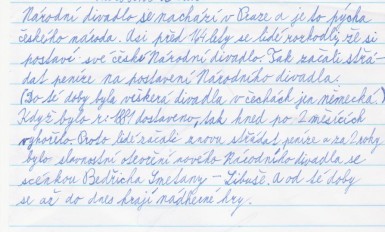 Národní divadlo se nachází v Praze a je to pýcha
českého národa. Asi před 144 lety se lidé rozhodli, že si
postaví své české Národní divadlo. Tak začali střá-
dat peníze na postavení Národního divadla.
(Do té doby byla veškerá divadla v čechách jen německá.)
Když bylo r. 1881 dostaveno, tak hned po 2 měsících
vyhořelo. Proto lidé začali znovu střádat peníze a za 2 roky
bylo slavnostní otevření nového Národního divadla se
scénkou Bedřicha Smetany - Libuše. A od té doby
se až do dnes hrají nádherné hry.